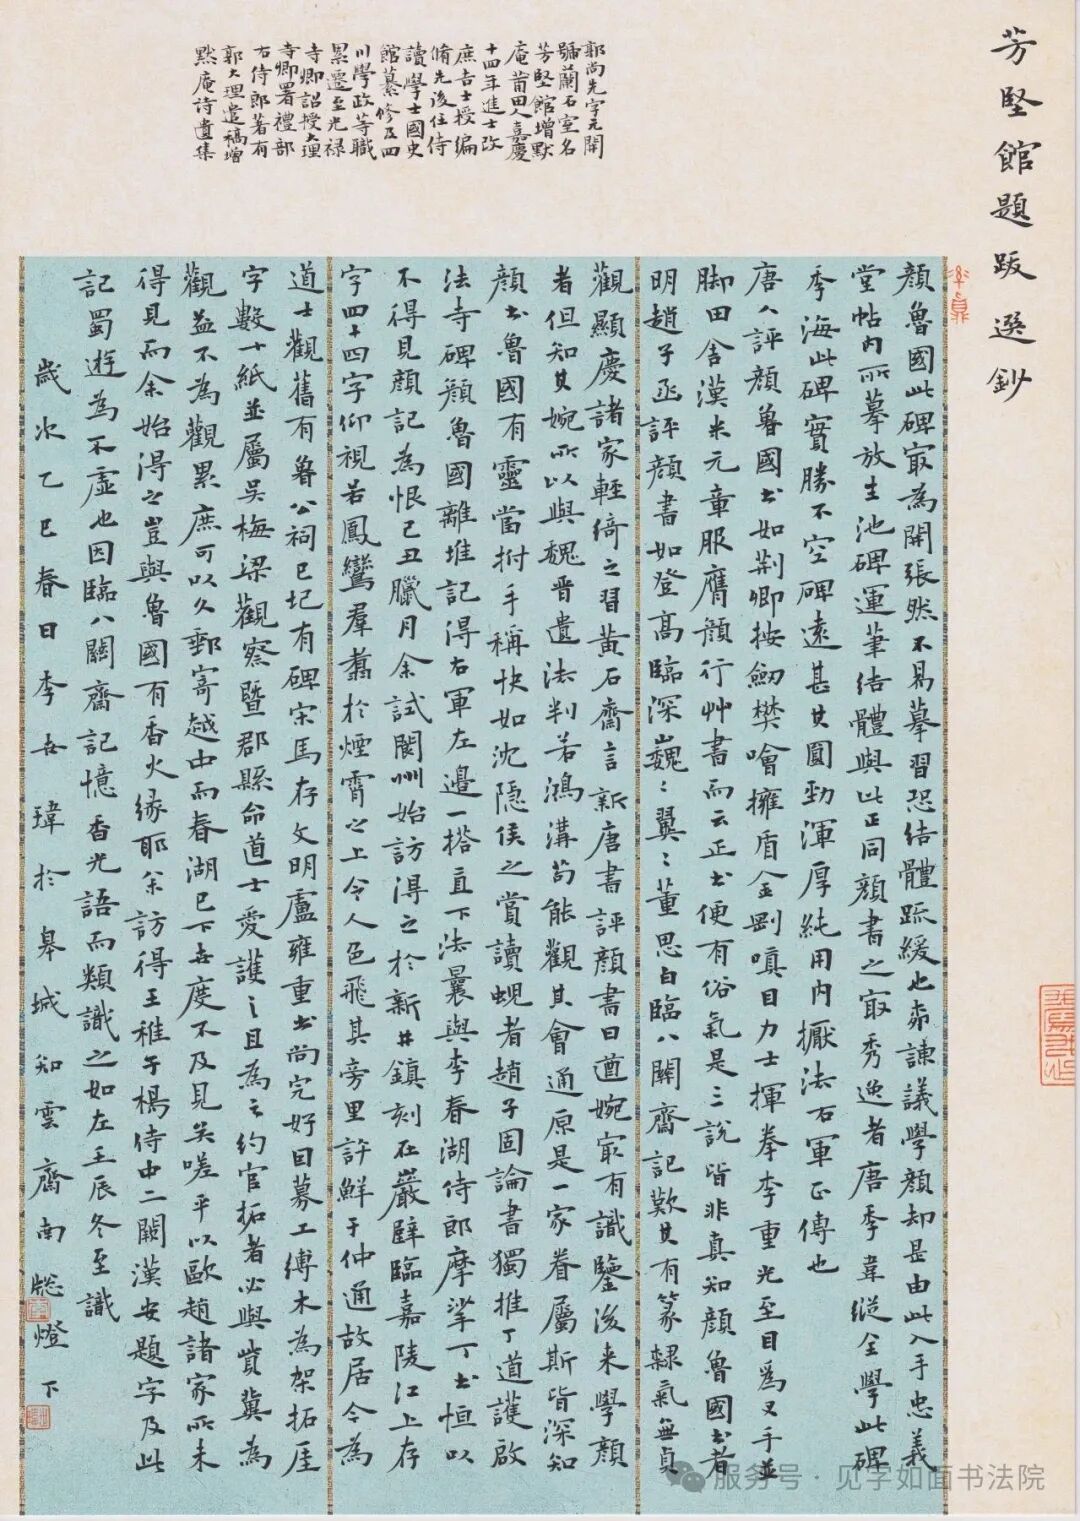 芳堅館題跋選鈔
郭尚先字元開
號蘭石室名
芳堅館增默
庵莆田人嘉慶
十四年進士改
庶吉士授編
脩先後任侍
讀學士國史
館纂修及四
川學政等職
累遷至光禄
寺卿詔授大理
寺卿署禮部
右侍郎著有
郭大理遺稿增
默庵詩遺集
顏魯國此碑冣為開張然不易摹習恐结體踈緩也声諫議學顏却是由此入手忠義
堂帖内所摹放生池碑運筆结體與此正同顏書之冣秀逸者唐季韋縱全學此碑
季海此碑實勝不空碑遠甚其圓勁渾厚純用内擫法右軍正傳也
唐人評顏魯國書如荆卿按劒樊噲擁盾金剛嗔目力士揮拳李重光至目為叉手並
脚田舍漢米元章服膺顏行艸書而云正書便有俗氣是三說皆非真知顏魯國書者
明趙子函評顏書如登高臨深巍〻翼〻董思白臨八關齋記歎其有篆隸氣無貞
觀顯慶諸家輕綺之習黄石齋言新唐書評顏書曰遒婉冣有識鑒後来學顏
者但知其婉所以與魏晋遺法判若鴻溝苟能觀其會通原是一家眷屬斯皆深知
顏書魯國有靈當拊手稱快如沈隱侯之賞讀蜺者趙子固論書獨推丁道護啟
法寺碑顏魯國離堆記得右軍左邊一搭直下法曩與李春湖侍郎摩挲丁書恒以
不得見顏記為恨己丑臘月余試閬州始訪得之於新井鎮刻在巖壁臨嘉陵江上存
字四十四字仰視若鳳鸞羣翥於煙霄之上令人色飛其旁里許鮮于仲通故居今為
道士觀舊有魯公祠已圮有碑宋馬存文明盧雍重書尚完好因募工縛木為架拓厓
字數十紙並屬吳梅梁觀察暨郡縣命道士愛護之且為之約官拓者必與貲冀為
觀益不為觀累庶可以久郵寄越中而春湖已下世度不及見矣嗟乎以歐趙諸家所未
得見而余始得之豈與魯國有香火缘耶余訪得王稚子楊侍中二闕漢安題字及此
記蜀遊為不虛也因臨八關齋記憶香光語而類識之如左壬辰冬至識
歲次乙巳春日李世瑋於皋城知雲齋南牕燈下
服务号·见字如面书法院